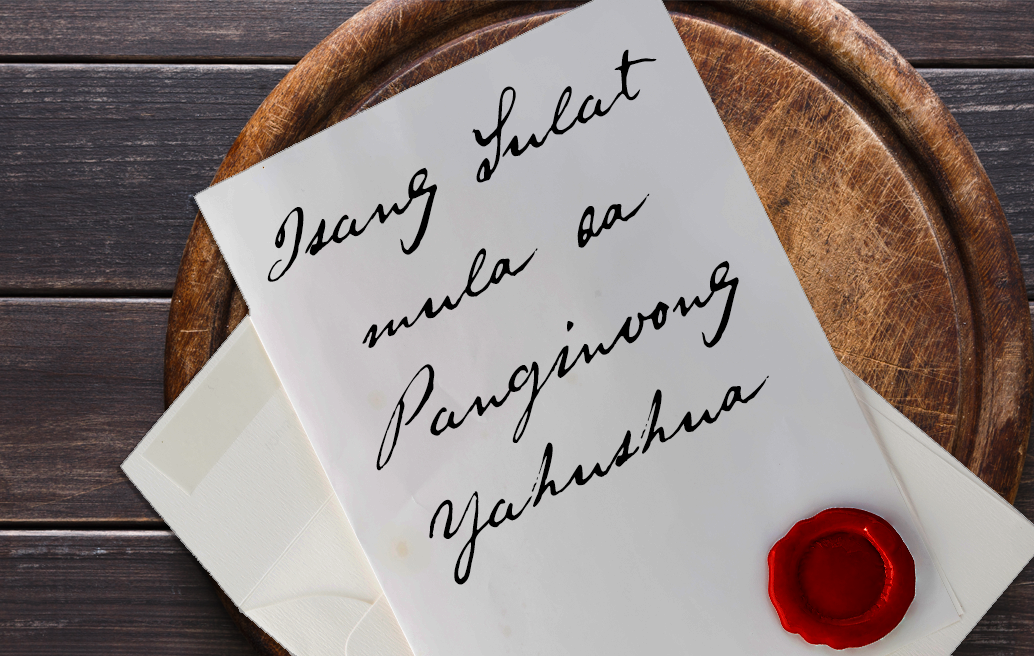 Isang Sulat
mula sa
Panginoong
Yahushua